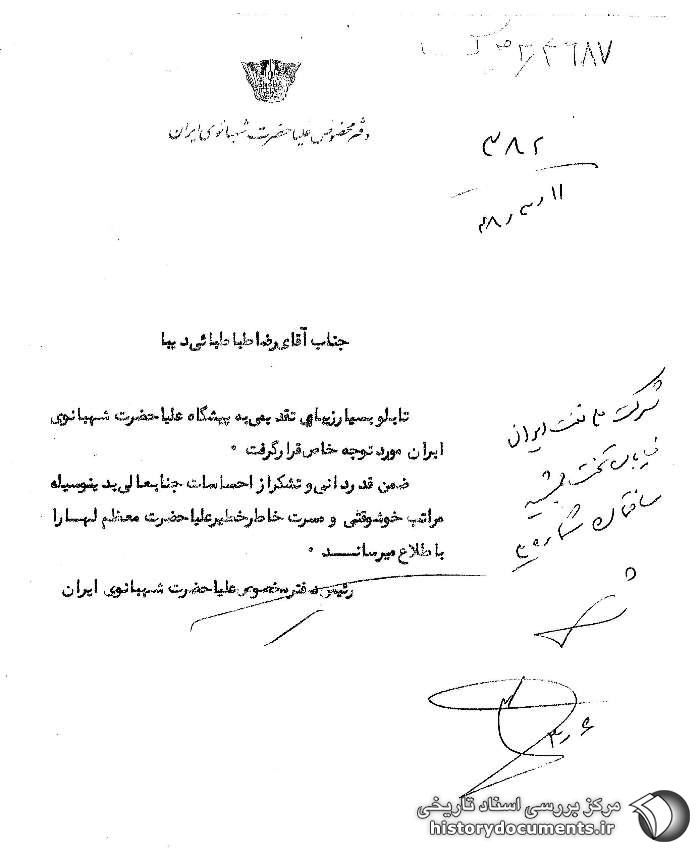 ۴۶۸۷
دفتر مخصوص علیاحضرت شهبانوی ایران
۳۸۲
۱۱ر۳ر۴۸
جناب آقای رضا طباطبائی دیبا
تابلو بسیار زیبای تقدیمی به پیشگاه علیاحضرت شهبانوی
ایران مورد توجه خاص قرار گرفت ۰
ضمن قدردانی و تشکر از احساسات جنابعالی بدینوسیله
مراتب خوشوقتی و مسرت خاطر خطیر علیاحضرت معظم لها را
باطلاع میرسانـــد ۰
رئیس دفتر مخصوص علیاحضرت شهبانوی ایران
شرکت ملی نفت ایران
خیابان تخت جمشید
ساختمان شماره ۳
۶ر۳
مرکز بررسی اسناد تاریخی
historydocuments.ir